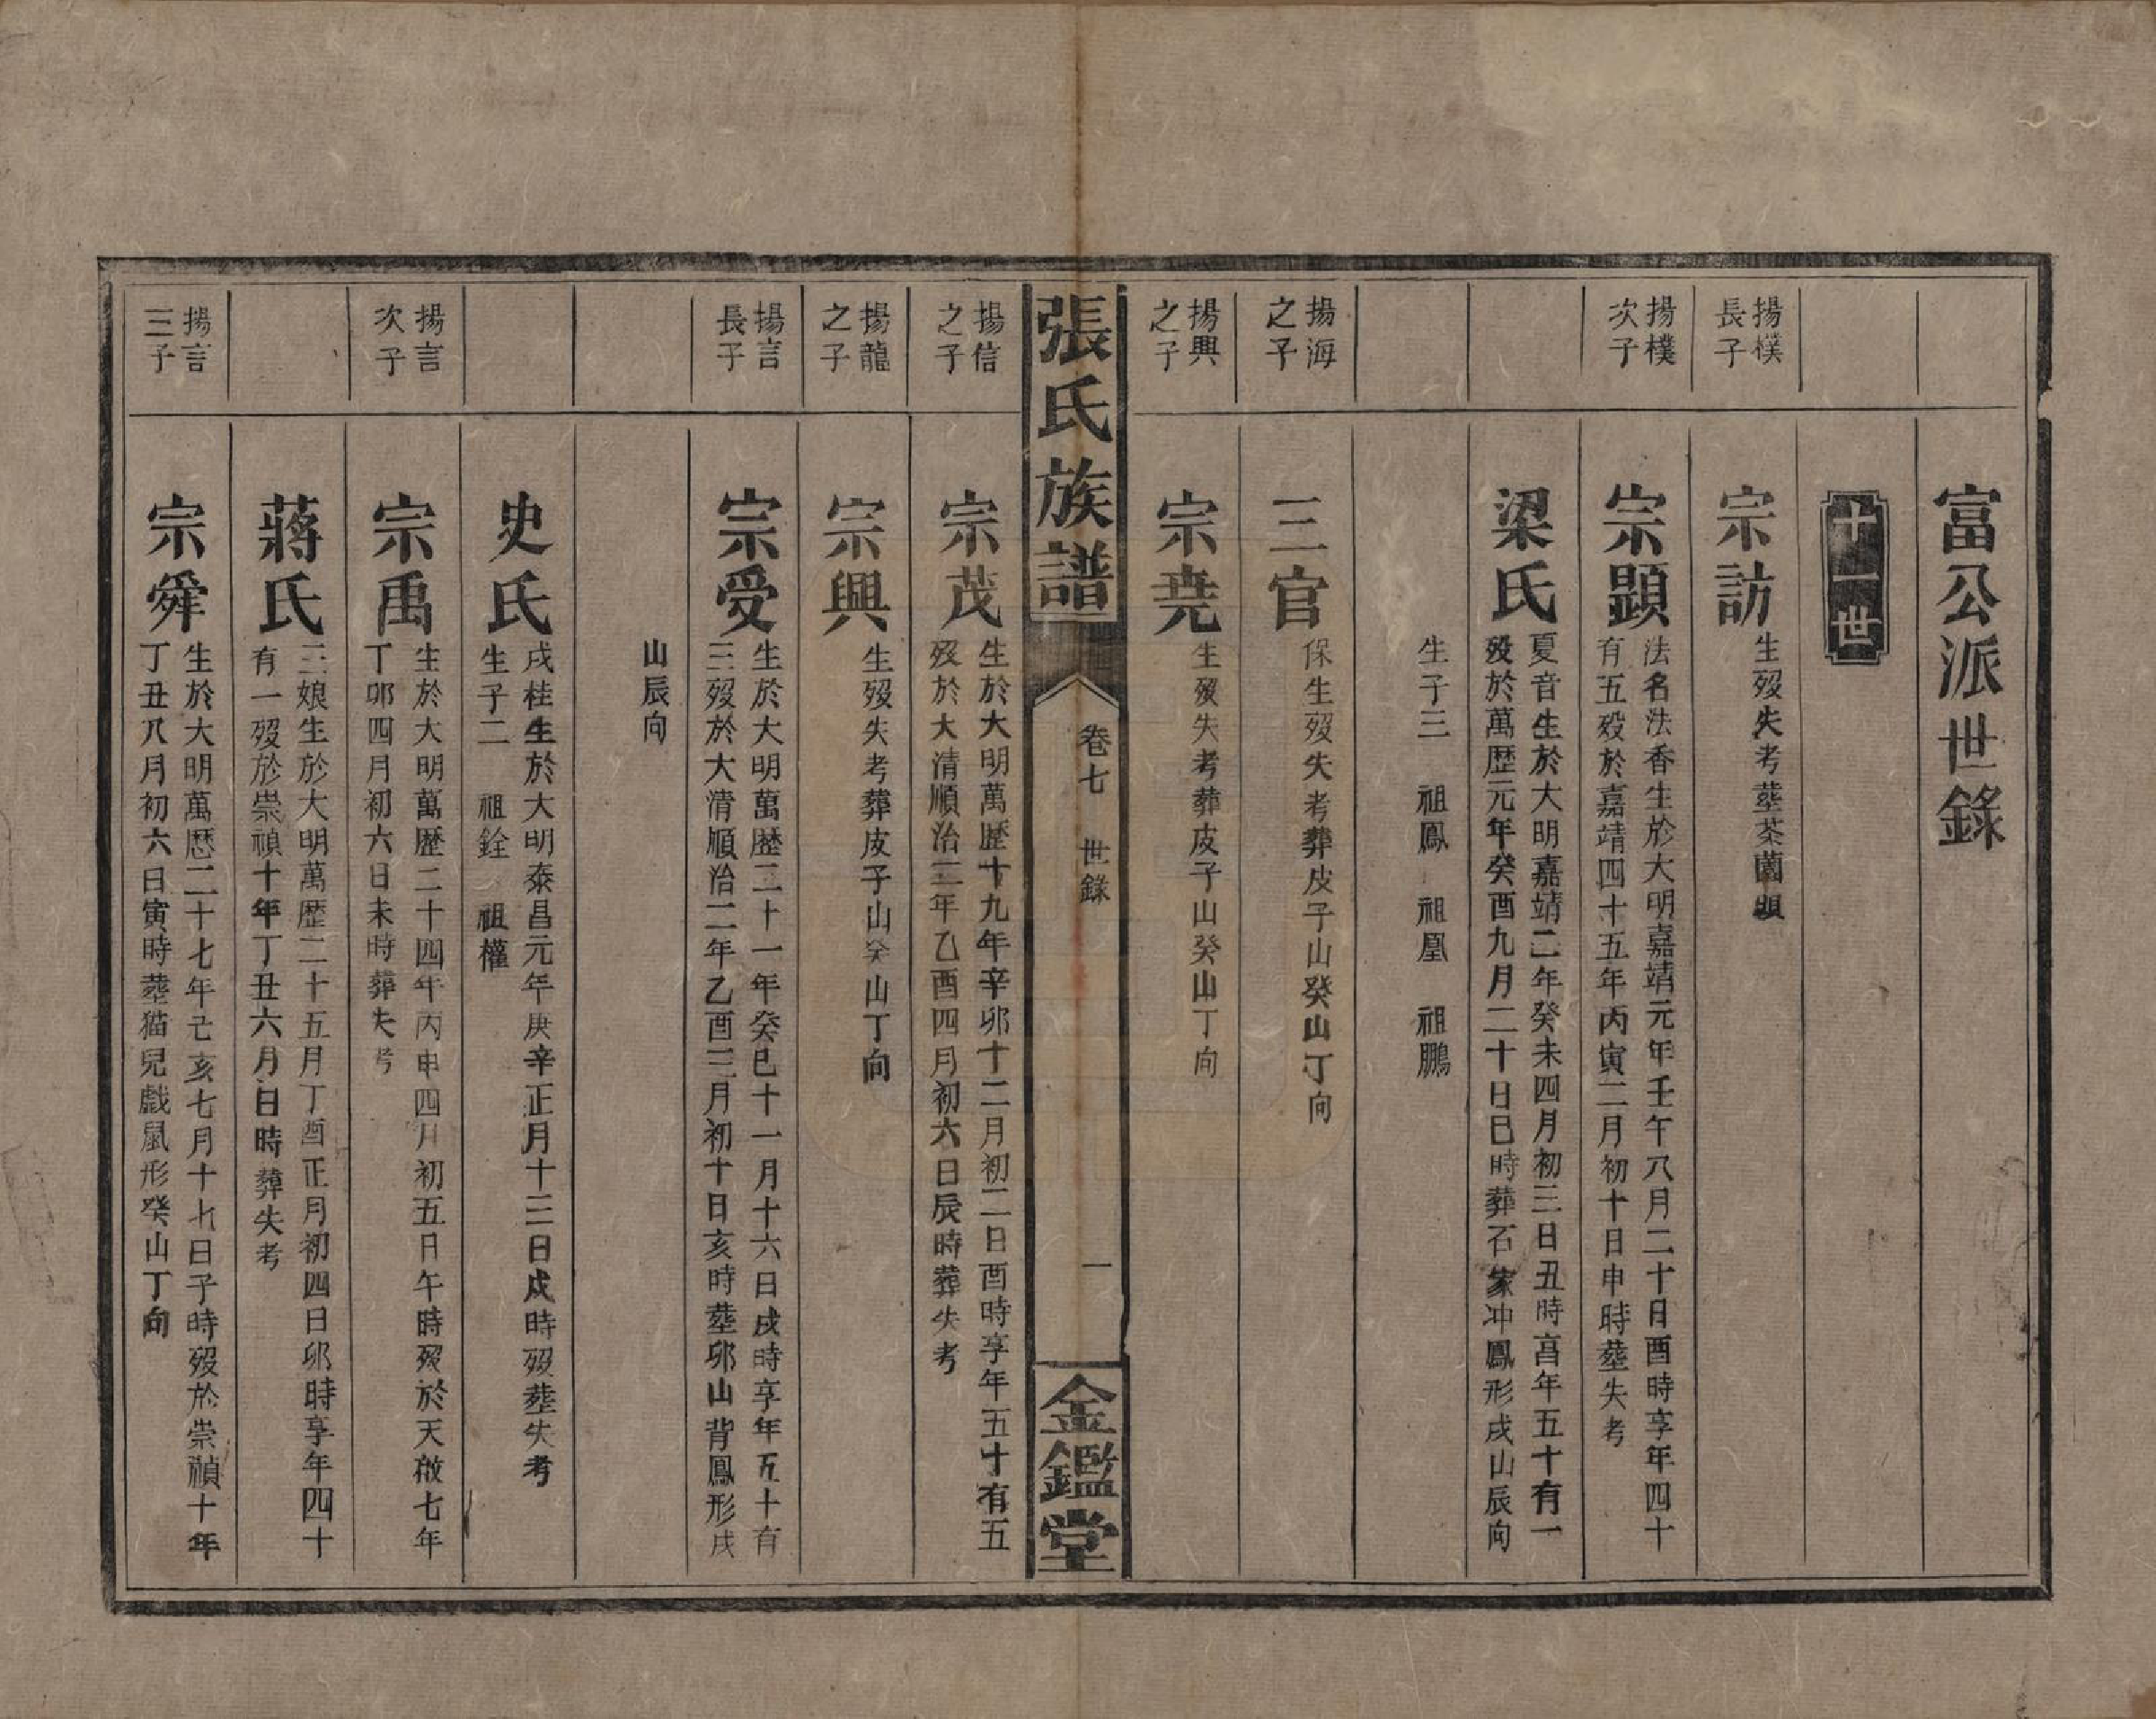 富公派世錄
十一世
揚檏長子
宗訪
生歿失考塟茶薗垻
揚檏次子
宗顕
法名法香生於大明嘉靖元年壬午八月二十日酉時享年四十
有五歿於嘉靖四十五年丙寅二月初十日申時塟失考
梁氏
夏音生於大明嘉靖二年癸未四月初三日丑時享年五十有一
歿於萬歴元年癸酉九月二十日巳時葬石家冲鳳形戌山辰向
生子三　祖鳳　祖凰　祖鵬
揚海之子
三官
保生歿失考葬皮子山癸山丁向
揚興之子
宗堯
生歿失考葬皮子山癸山丁向
張氏族譜
卷七　世錄
一
金鑑堂
揚信之子
宗茂
生於大明萬歴十九年辛卯十二月初二日酉時享年五十有五
歿於大清順治二年乙酉四月初六日辰時葬失考
揚龍之子
宗興
生歿失考葬皮子山癸山丁向
揚言長子
宗受
生於大明萬歴二十一年癸巳十一月十六日戌時享年五十有
三歿於大清順治二年乙酉三月初十日亥時塟卯山背鳳形戌
山辰向
史氏
戌桂生於大明泰昌元年庚辛正月十三日戌時歿塟失考
生子二　祖銓　祖權
揚言次子
宗禹
生於大明萬歴二十四年丙申四月初五日午時歿於天啟七年
丁卯四月初六日未時葬失考
蔣氏
三娘生於大明萬歴二十五月丁酉正月初四日卯時享年四十
有一歿於崇禎十年丁丑六月　日時葬失考
揚言三子
宗舜
生於大明萬歴二十七年己亥七月十七日子時歿於崇禎十年
丁丑八月初六日寅時塟猫兒戲鼠形癸山丁向